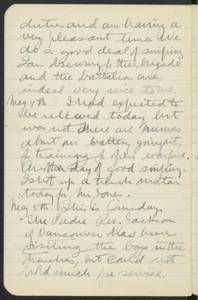 duties and am having a
very pleasant time. We
do a good deal of sniping
I am drawing to the brigade
and the battalion are
indeed very nice to me.
May 4th. I had expected to
be relieved today but
was not. There are rumors
about our battery going out
to training to open warfare.
Another day of good sniping.
I shot up a trench mortar
today for Mr. Jones.
May 5th. This is Sunday.
The Padre Rev. Jackson
of Vancouver has been
visiting the boys in the
trenches, but could not
hold much of a service.